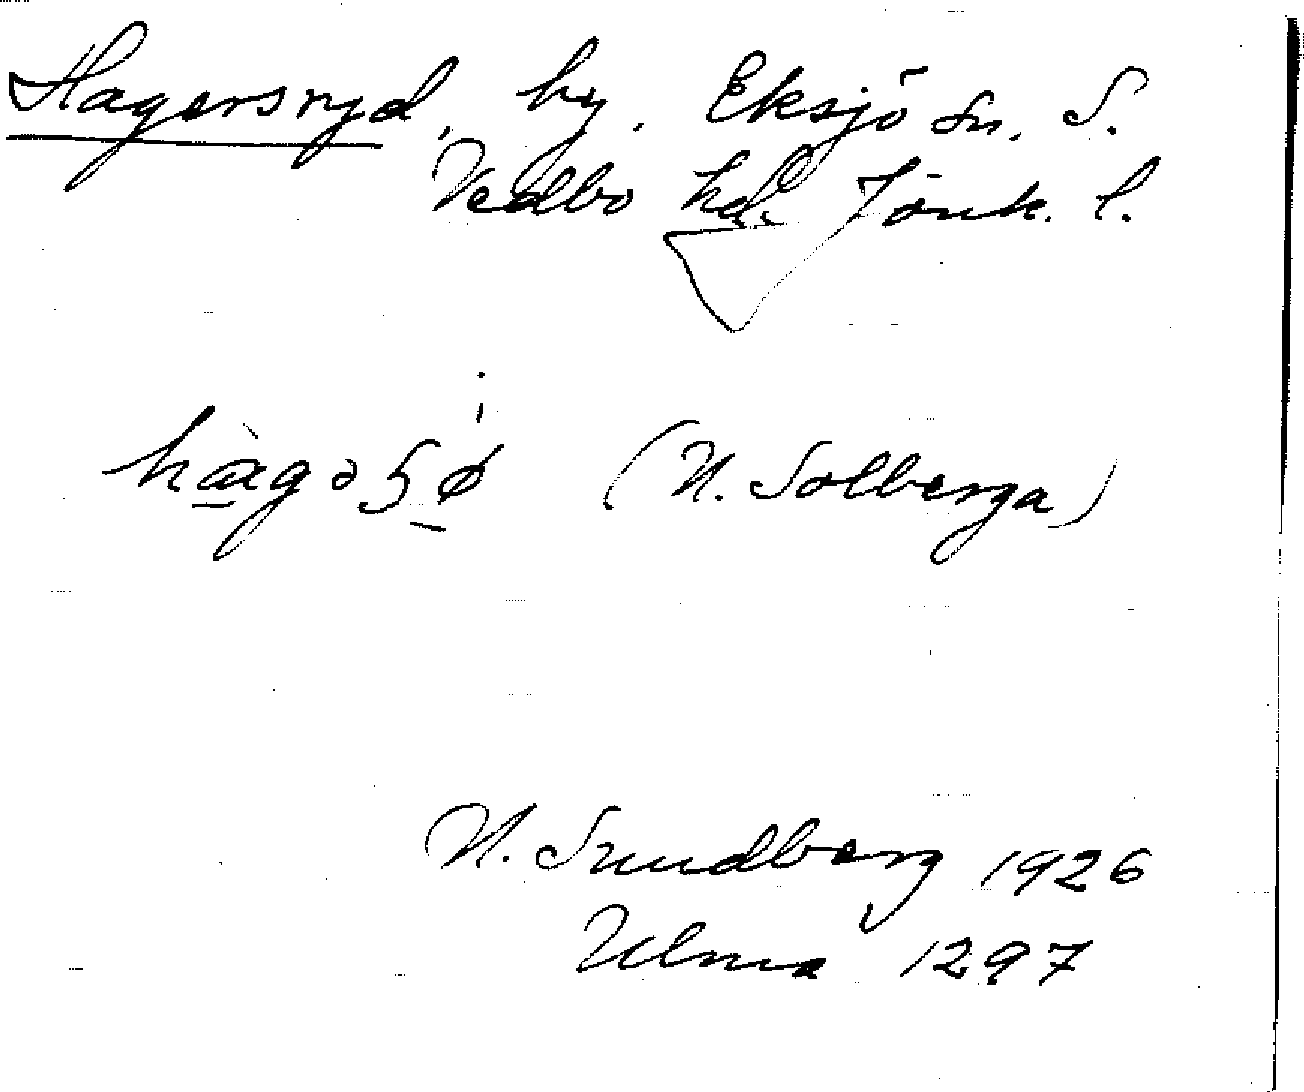 Hagersryd, by, Eksjö sn. S.
Vedbo hd. Jönk. l.
(N. Solberga)
N. Sundberg 1926
Ulma 1297